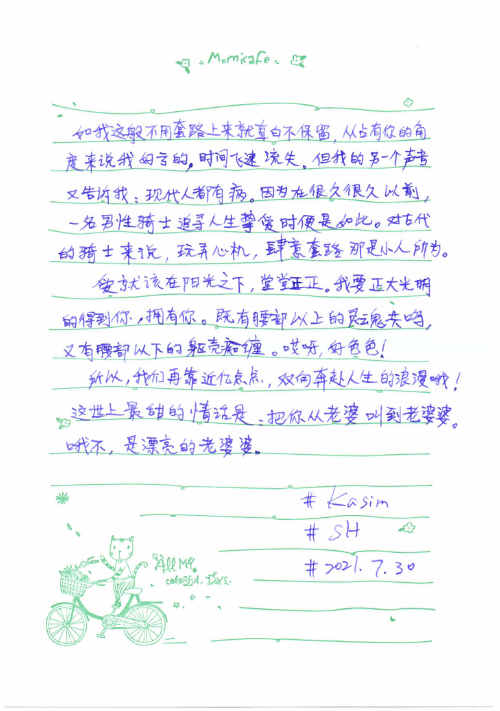 Momicafe
如我这般不用套路上来就直白不保留,从占有你的角
度来说我的言的,时间飞速流失。但我的另一个声音
又告诉我:现代人都有病。因为在很久很久以前,
一名男性骑士追寻人生挚爱时便是如此。对古代
的骑士来说,玩弄心机,肆意套路那是小人所为。
爱就该在阳光之下,堂堂正正。我要正大光明
的得到你,拥有你。既有腰部以上的灵魂共鸣,
又有腰部以下的躯壳痴缠。哎呀,好色色!
所以,我们再靠近亿点点,双向奔赴人生的浪漫哦!
这世上最甜的情话是:把你从老婆叫到老婆婆。
哦不,是漂亮的老婆婆。
# Kasim
# SH
# 2021. 7. 30
All My
colorful Days.